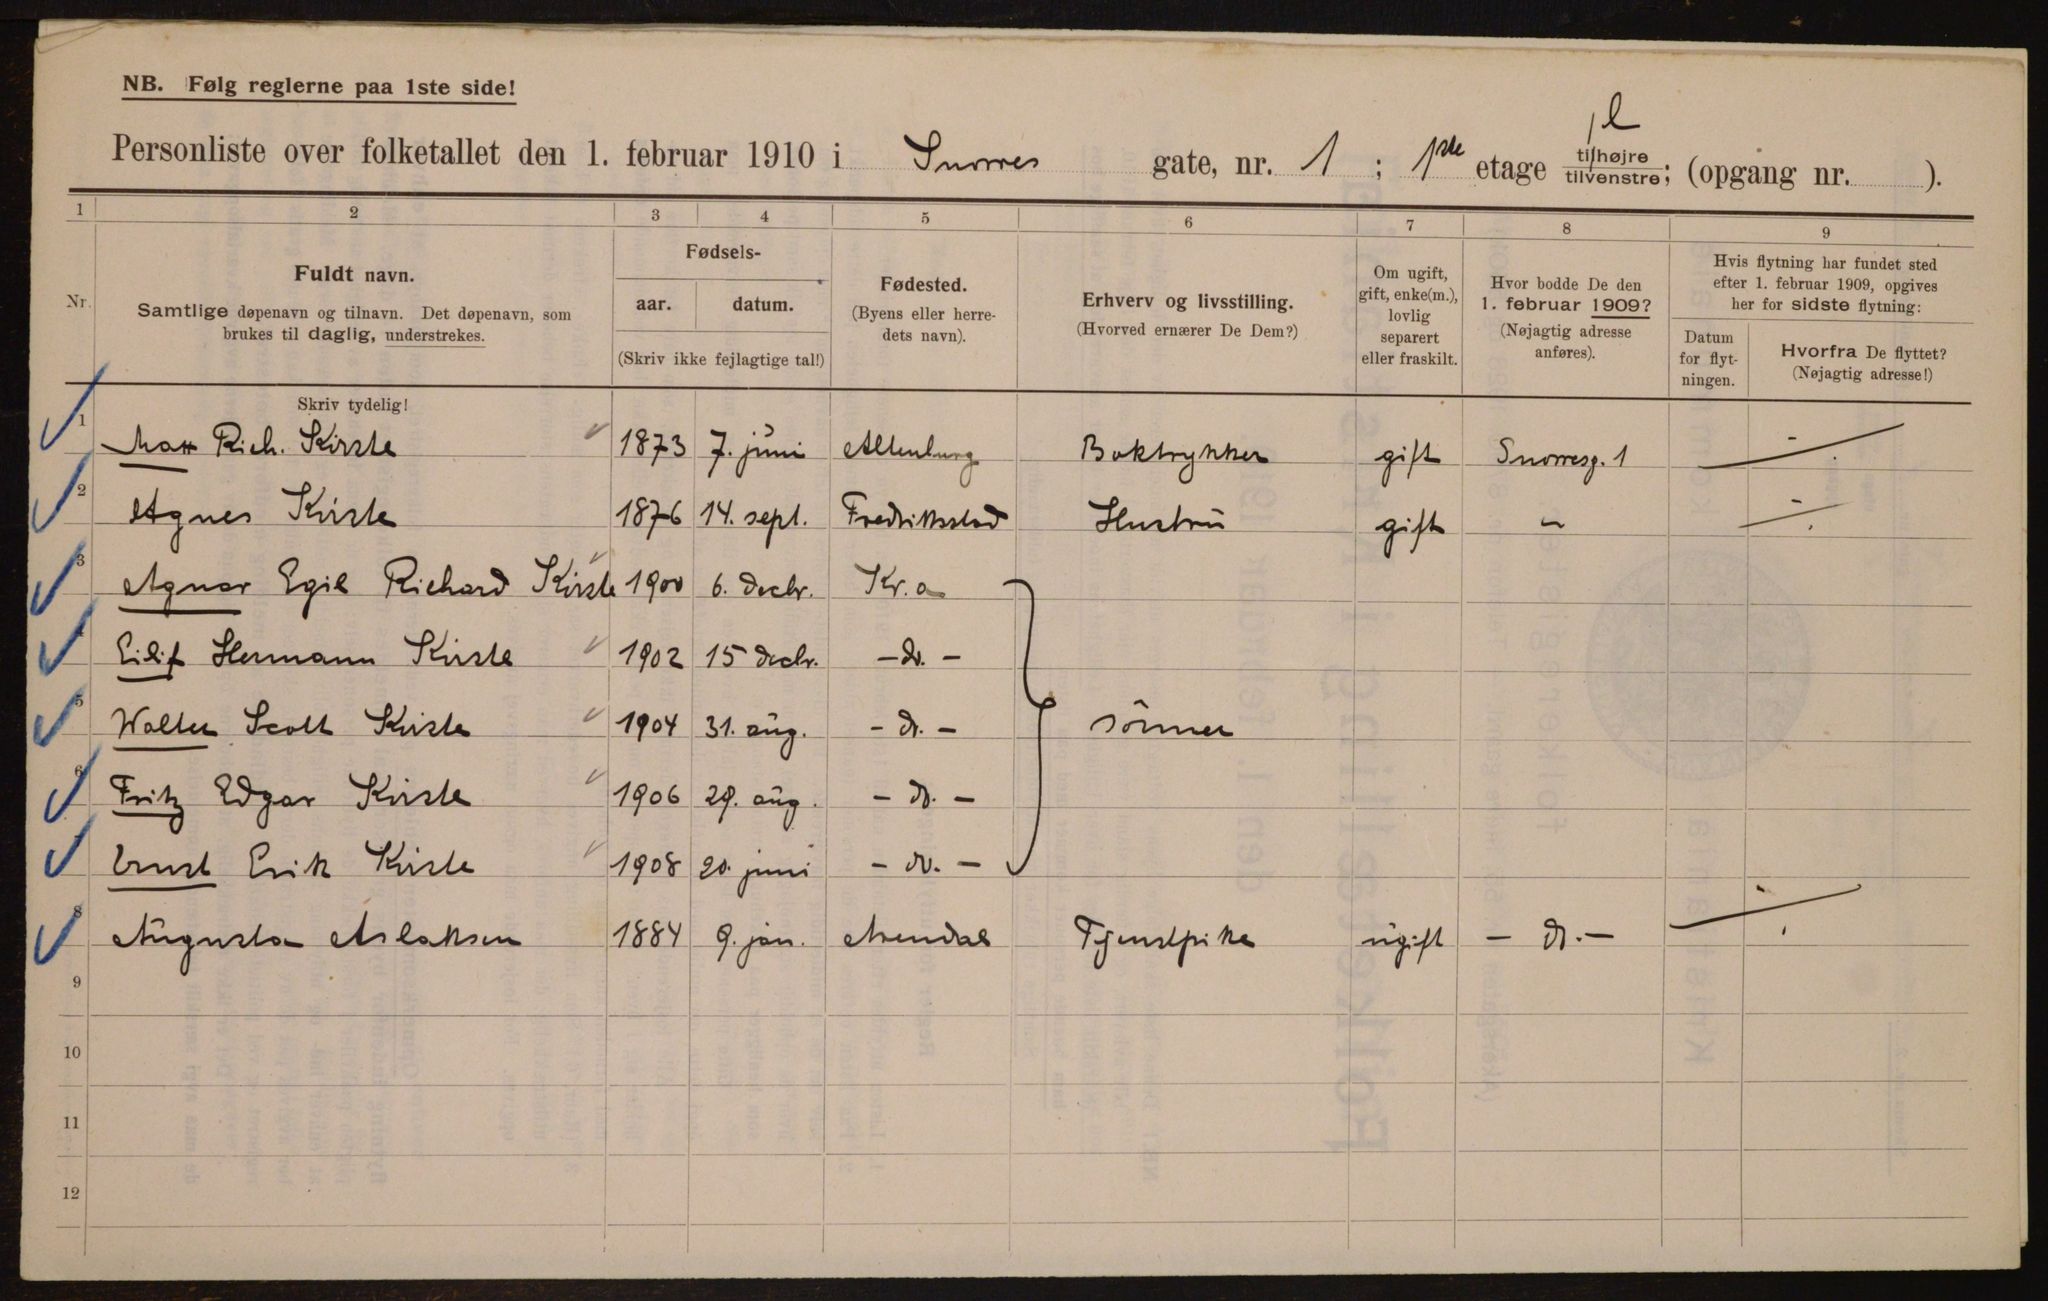 NB. Følg reglerne paa 1ste side!
Personliste over folketallet den 1. februar 1910 i Snorres gate, nr. 1 ; 1ste etage tilhøjre tilvenstre; (opgang nr. ).
1 2 3 4 5 6 7 8 9
Nr. Fuldt navn. Samtlige døpenavn og tilnavn. Det døpenavn, som brukes til daglig, understrekes.
Fødsels- aar. datum. (Skriv ikke fejlagtige tal!)
Fødested. (Byens eller herredets navn).
Erhverv og livsstilling. (Hvorved ernærer De Dem?)
Om ugift, gift, enke(m.), lovlig separert eller fraskilt.
Hvor bodde De den 1. februar 1909? (Nøjagtig adresse anføres).
Hvis flytning har fundet sted efter 1. februar 1909, opgives her for sidste flytning:
Datum for flytningen. Hvorfra De flyttet? (Nøjagtig adresse!)
Skriv tydelig!
1 Max Rich. Kirste 1873 7. juni Altenburg Boktrykker gift Snorresg. 1 -
2 Agnes Kirste 1876 14. sept. Fredriksstad Hustru gift " -
3 Agnar Egil Richard Kirste 1900 6. decbr. Kr.a
4 Eilif Hermann Kirste 1902 15 decbr. - do. -
5 Walter Scott Kirste 1904 31. aug. - do. - sönner
6 Fritz Edgar Kirste 1906 29. aug. - do. -
7 Ernst Erik Kirste 1908 20. juni - do. -
8 Augusta Aslaksen 1884 9. jan. Arendal Tjenstpike ugift - do. -
9
10
11
12